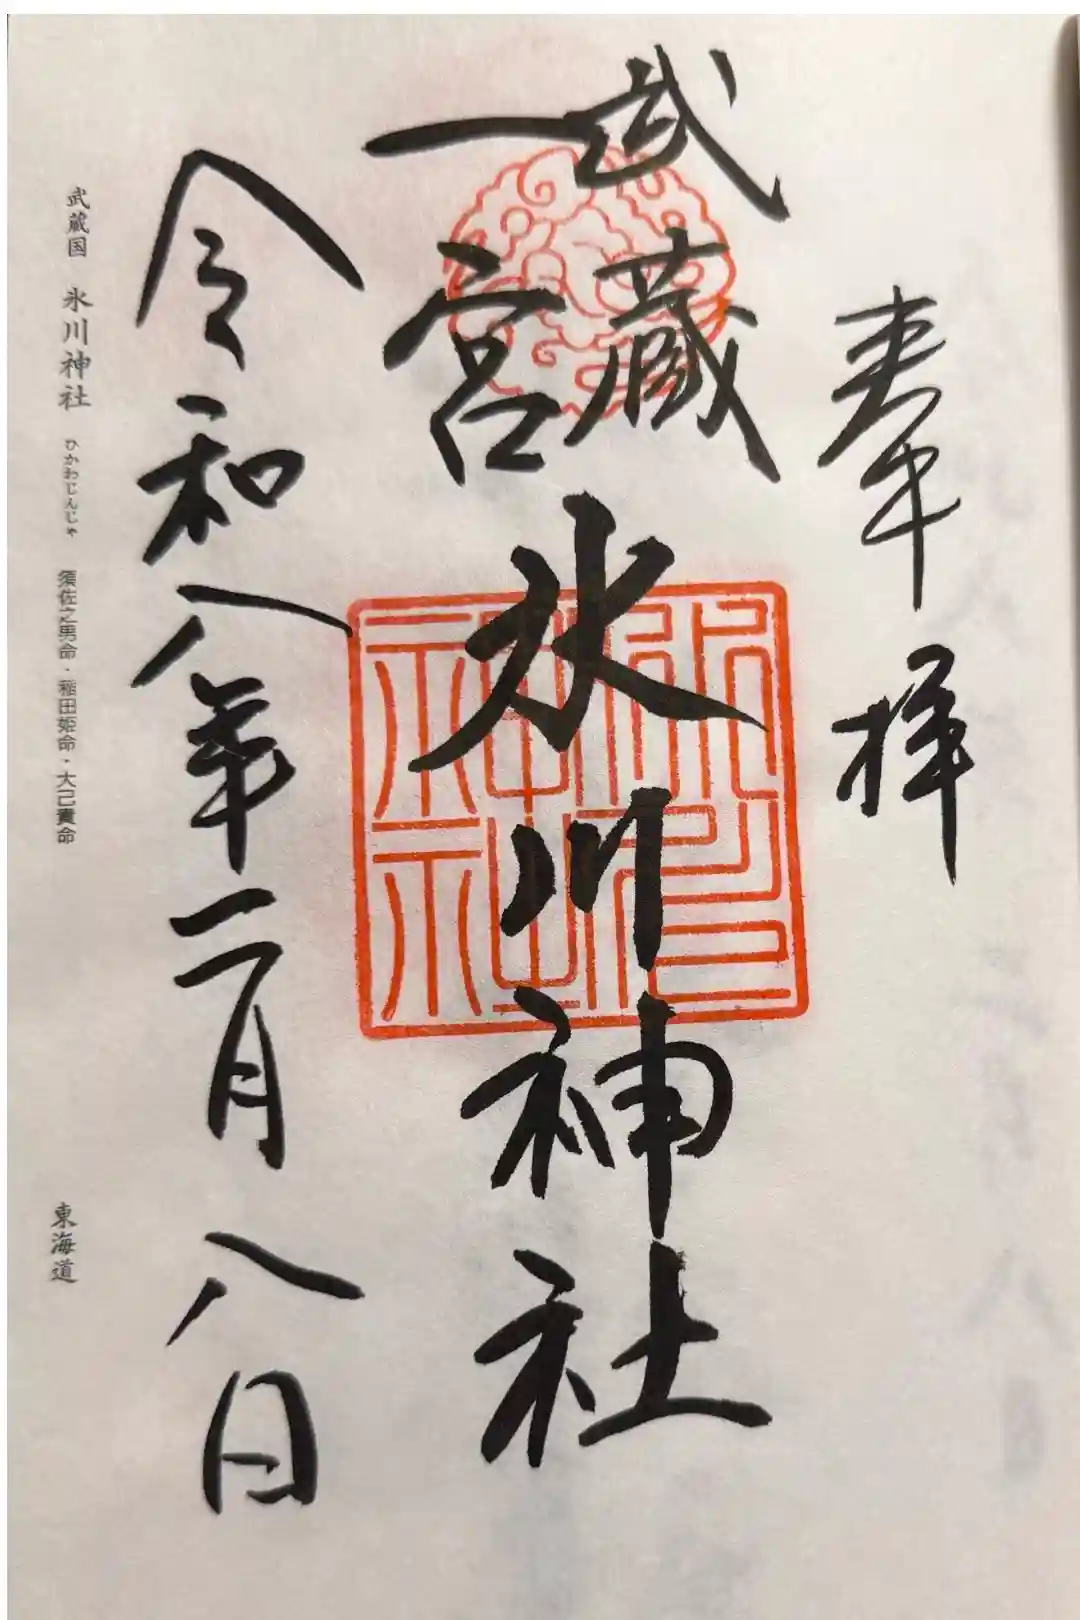 奉拝
武蔵
一宮
氷川神社
令和八年二月八日
武蔵国 氷川神社 ひかわじんじゃ 須佐之男命・稲田姫命・大己貴命 東海道